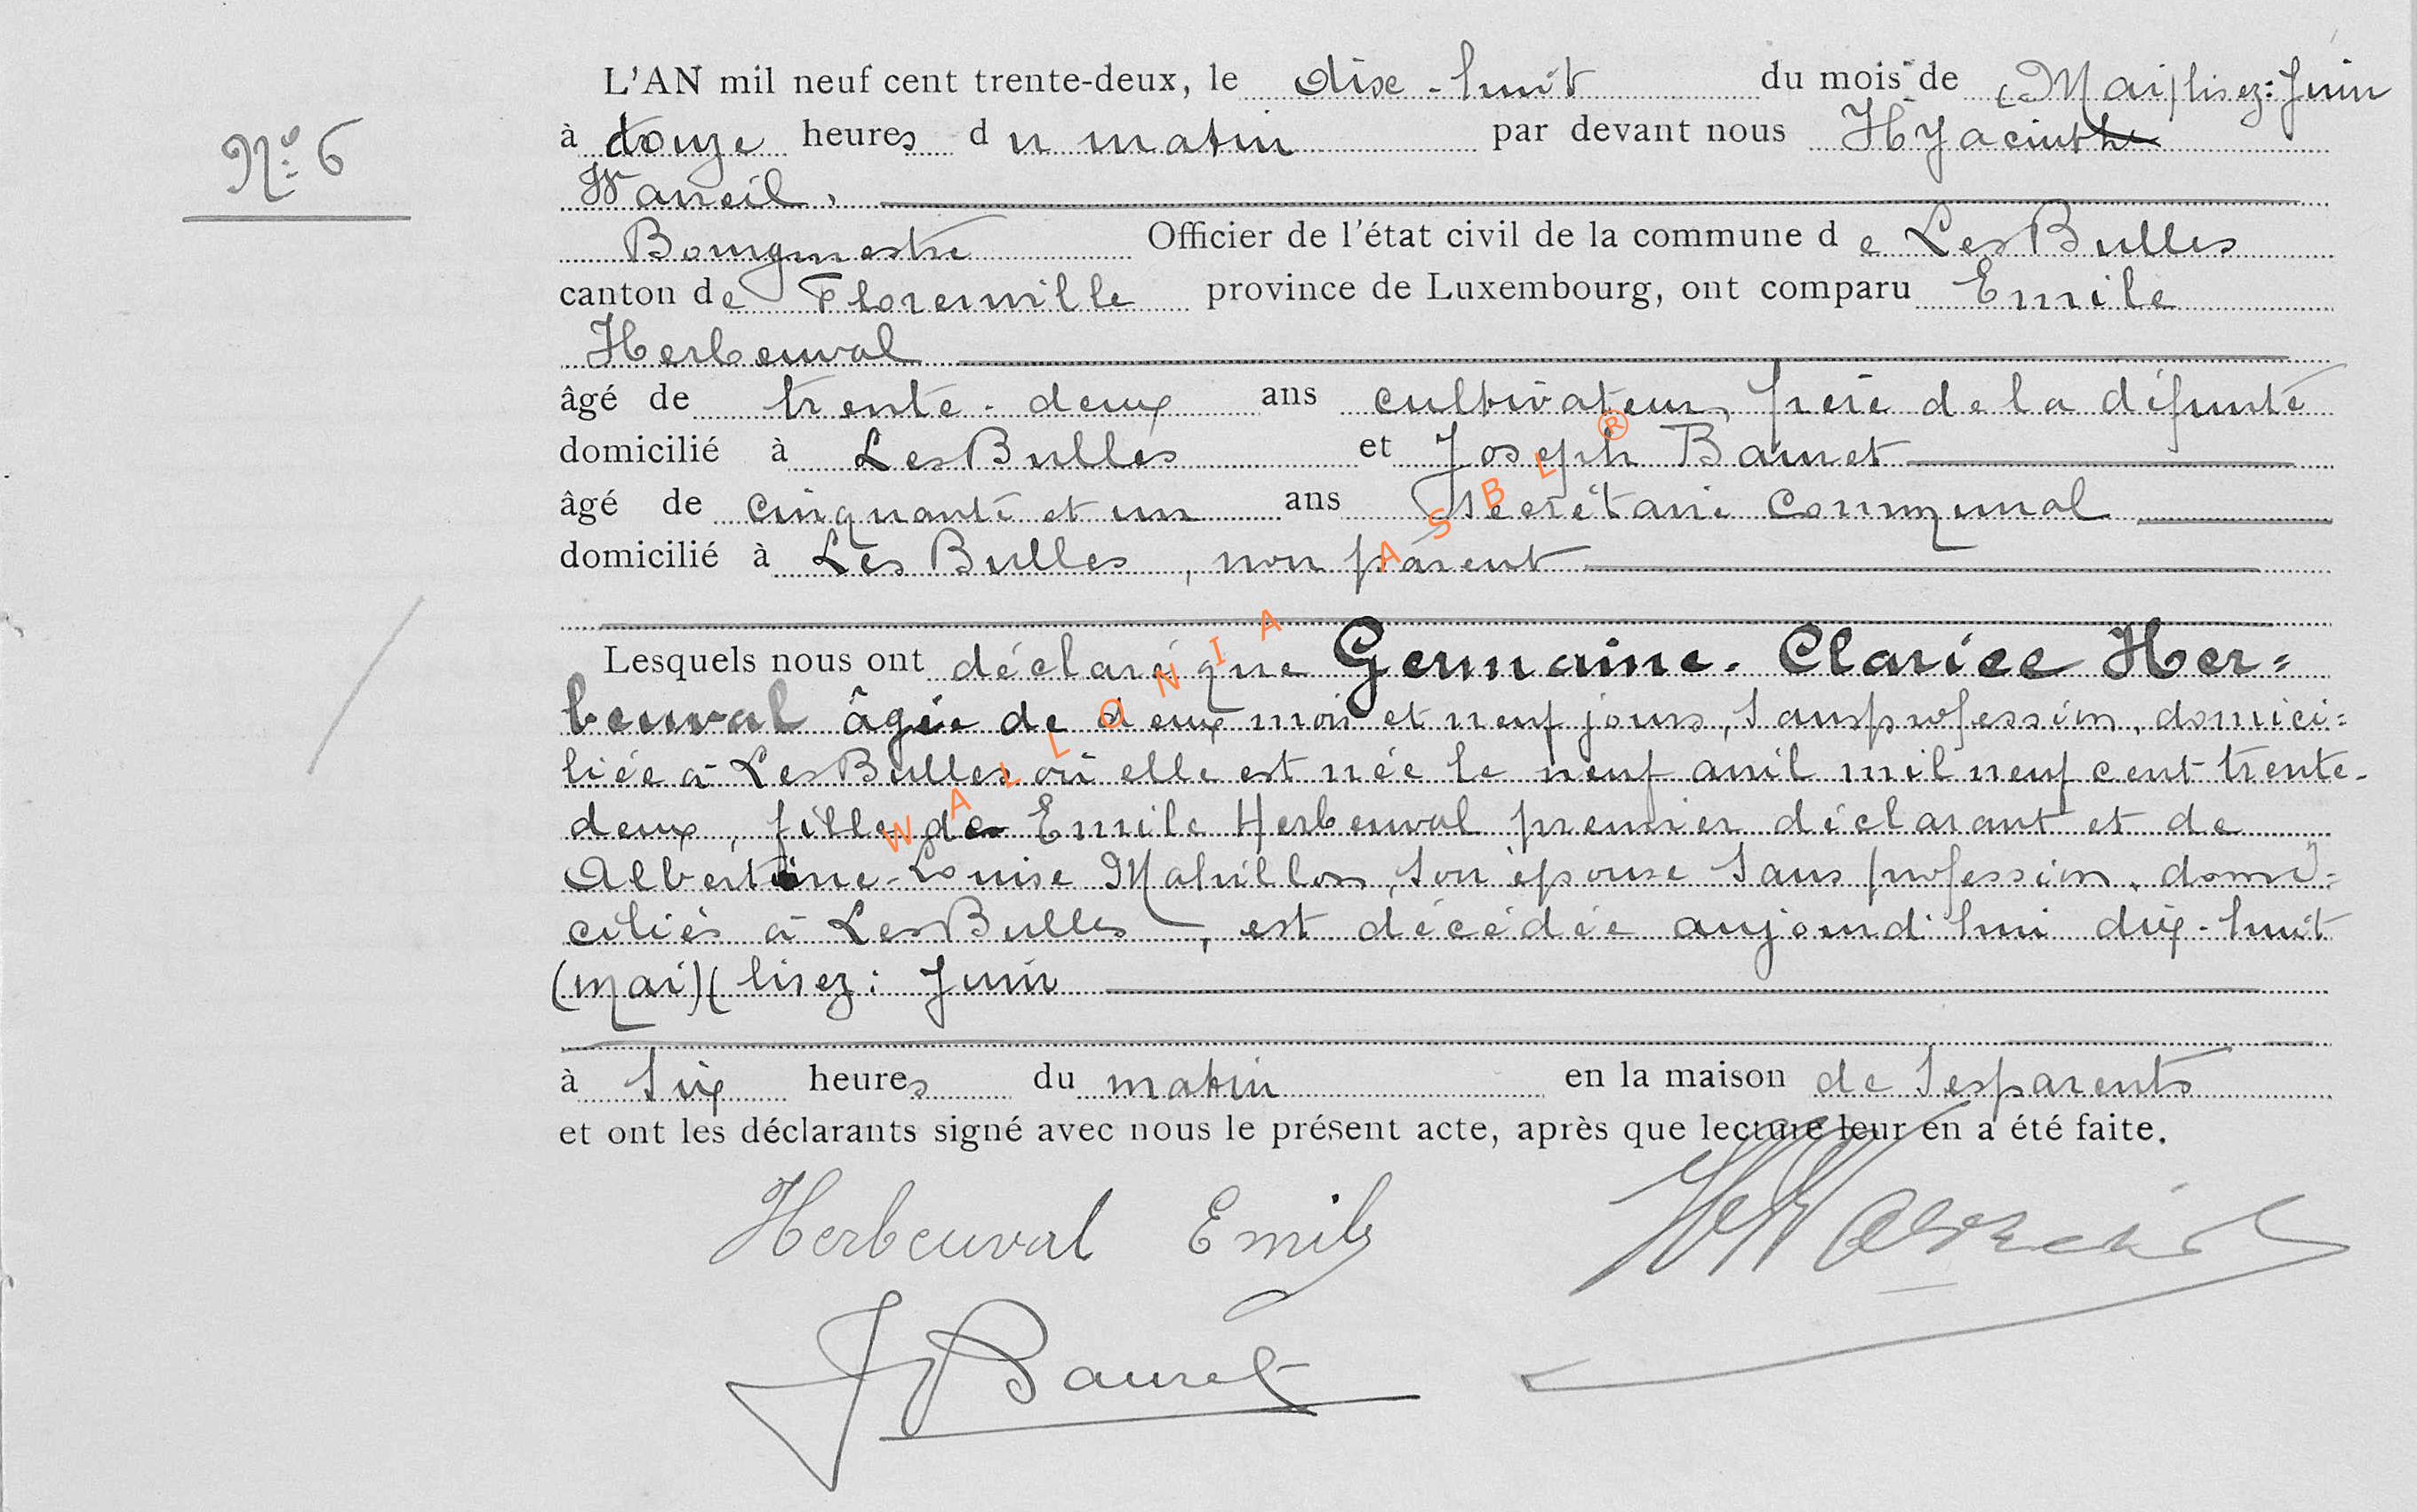 L'AN mil neuf cent trente-deux, le dix-huit du mois de (Mai) lisez: Juin
Nº 6
à douze heures du matin par devant nous Hyacinthe
Warreil,
Bourgmestre Officier de l'état civil de la commune de Les Bulles
canton de Florenville province de Luxembourg, ont comparu Emile
Herbeuval
âgé de trente-deux ans cultivateur, père de la défunte
domicilié à Les Bulles et Joseph Bauret
âgé de cinquante et un ans secrétaire communal
domicilié à Les Bulles, non parent
Lesquels nous ont déclaré que Germaine-Clarice Her=
beuval âgée de deux mois et neuf jours, sans profession, domici=
liée à Les Bulles où elle est née le neuf avril mil neuf cent trente-
deux, fille de Emile Herbeuval premier déclarant et de
Albertine-Louise Mahillon, son épouse sans profession, domi=
ciliés à Les Bulles, est décédée aujourd'hui dix-huit
(mai) (lisez: Juin
à six heures du matin en la maison de ses parents
et ont les déclarants signé avec nous le présent acte, après que lecture leur en a été faite.
Herbeuval Emile
J Bauret
WALLONIA ASBL ®